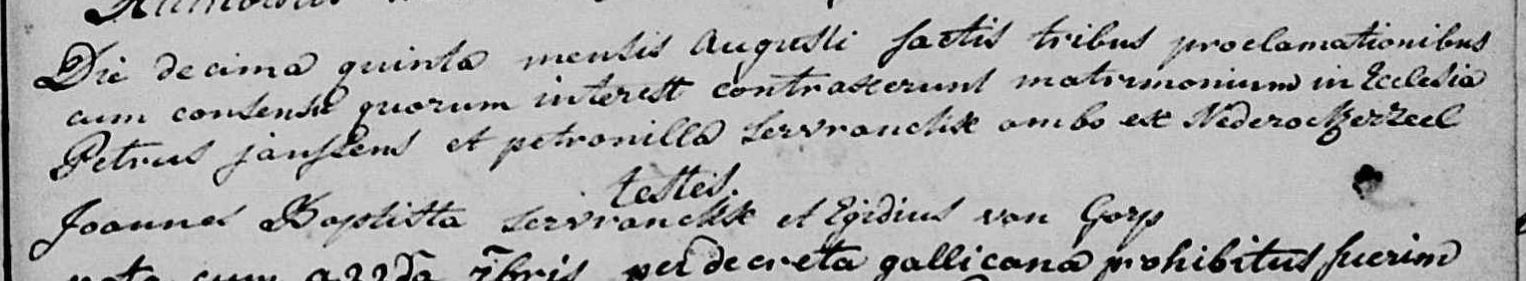 Die decima quinta mensis Augusti factis tribus proclamationibus
cum consensu quorum interest contraxerunt matrimonium in Ecclesia
Petrus janssens et petronilla servranckx ambo ex Nederockerzeel
testes.
Joannes Baptista servranckx et Egidius van Gorp
nota cum a 22da 7bris per decreta gallicana prohibitus fuerim